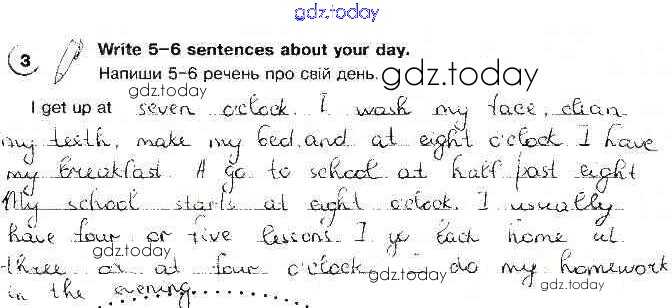 gdz.today
3 Write 5–6 sentences about your day.
Напиши 5–6 речень про свій день.
gdz.today
gdz.today
I get up at seven o'clock. I wash my face, clean
my teeth, make my bed, and at eight o'clock I have
my breakfast. I go to school at half past eight
My school starts at eight o'clock. I usually
have four or five lessons. I go back home at
gdz.today
three or at four o'clock. I do my homework
gdz.today
gdz.today
in the evening.